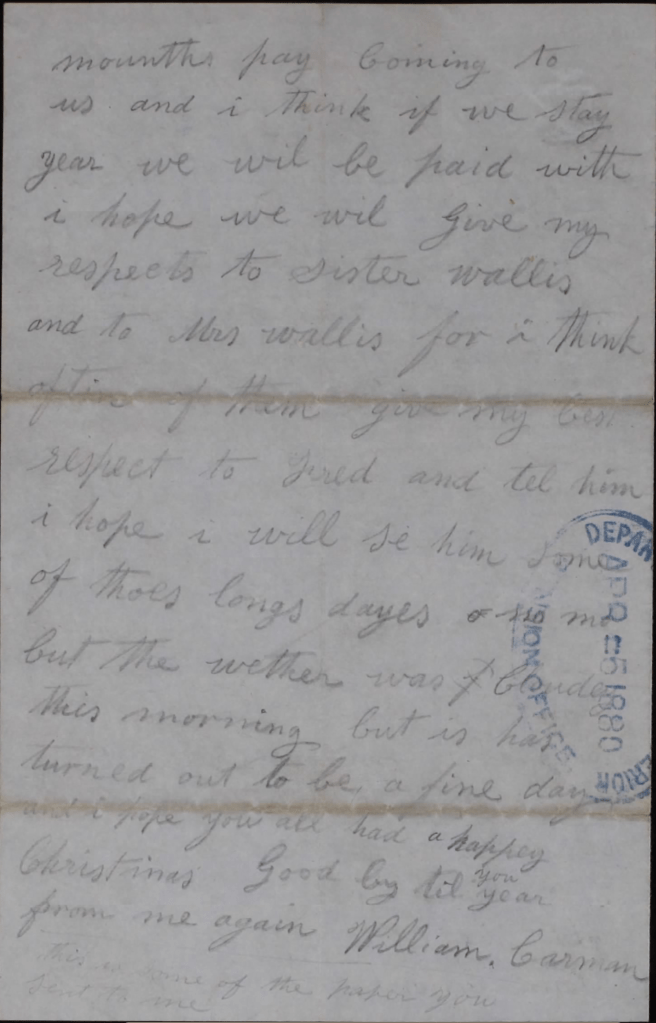 mounths pay Coming to
us and i think if we stay
year we wil be paid with
i hope we wil Give my
respects to sister wallis
and to Mrs wallis for i think
of them give my best
respect to Fred and tel him
i hope i will se him some
of thoes longs dayes
but the wether was Cloudy
this morning but is has
turned out to be a fine day
and i hope you all had a happey
Christmas Good by til you
year
from me again William. Carman
this is some of the paper you
sent to me
DEPAR
APR 25 1880
SION OFFICE
ERIOR